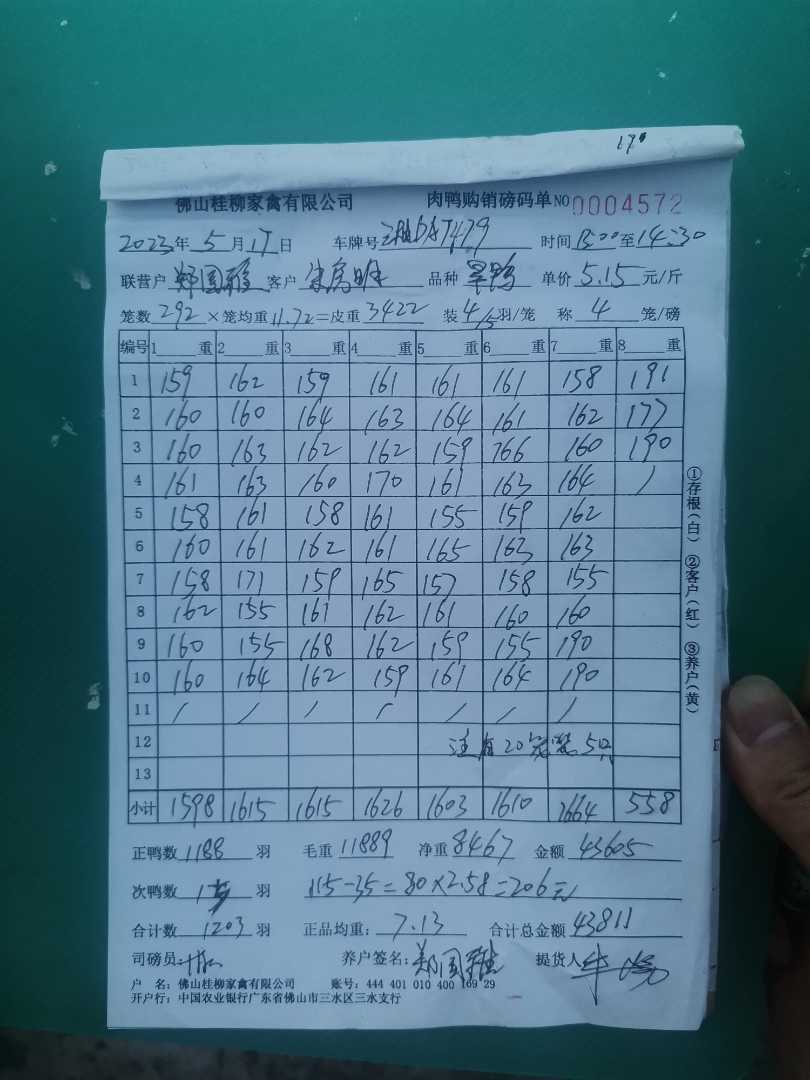 170
佛山桂柳家禽有限公司 肉鸭购销磅码单 NO 0004572
2023年5月17日 车牌号 A7479 时间 13:00至14:30
联营户 郑国雅 客户 品种 旱鸭 单价 5.15 元/斤
笼数 292 ×笼均重 11.72 =皮重 3422 装 4/5 羽/笼 称 4 笼/磅
编号 1 重 2 重 3 重 4 重 5 重 6 重 7 重 8 重
1 159 162 159 161 161 161 158 191
2 160 160 164 163 164 161 162 177
3 160 163 162 162 159 166 160 190
4 161 163 160 170 161 163 164 /
5 158 161 158 161 155 159 162
6 160 161 162 161 165 163 163
7 158 171 159 165 157 158 155
8 162 155 161 162 161 160 160
9 160 155 168 162 159 155 190
10 160 164 162 159 161 164 190
11 / / / / / / /
12 注有20笼装5只
13
小计 1598 1615 1615 1626 1603 1610 1664 558
正鸭数 1188 羽 毛重 11889 净重 8467 金额 43605
次鸭数 羽 115-35=80×2.58=206元
合计数 1203 羽 正品均重: 7.13 合计总金额 43811
司磅员: 养户签名: 郑国雅 提货人
户 名: 佛山桂柳家禽有限公司 账号: 444 401 010 400 169 29
开户行: 中国农业银行广东省佛山市三水区三水支行
①存根(白) ②客户(红) ③养户(黄)